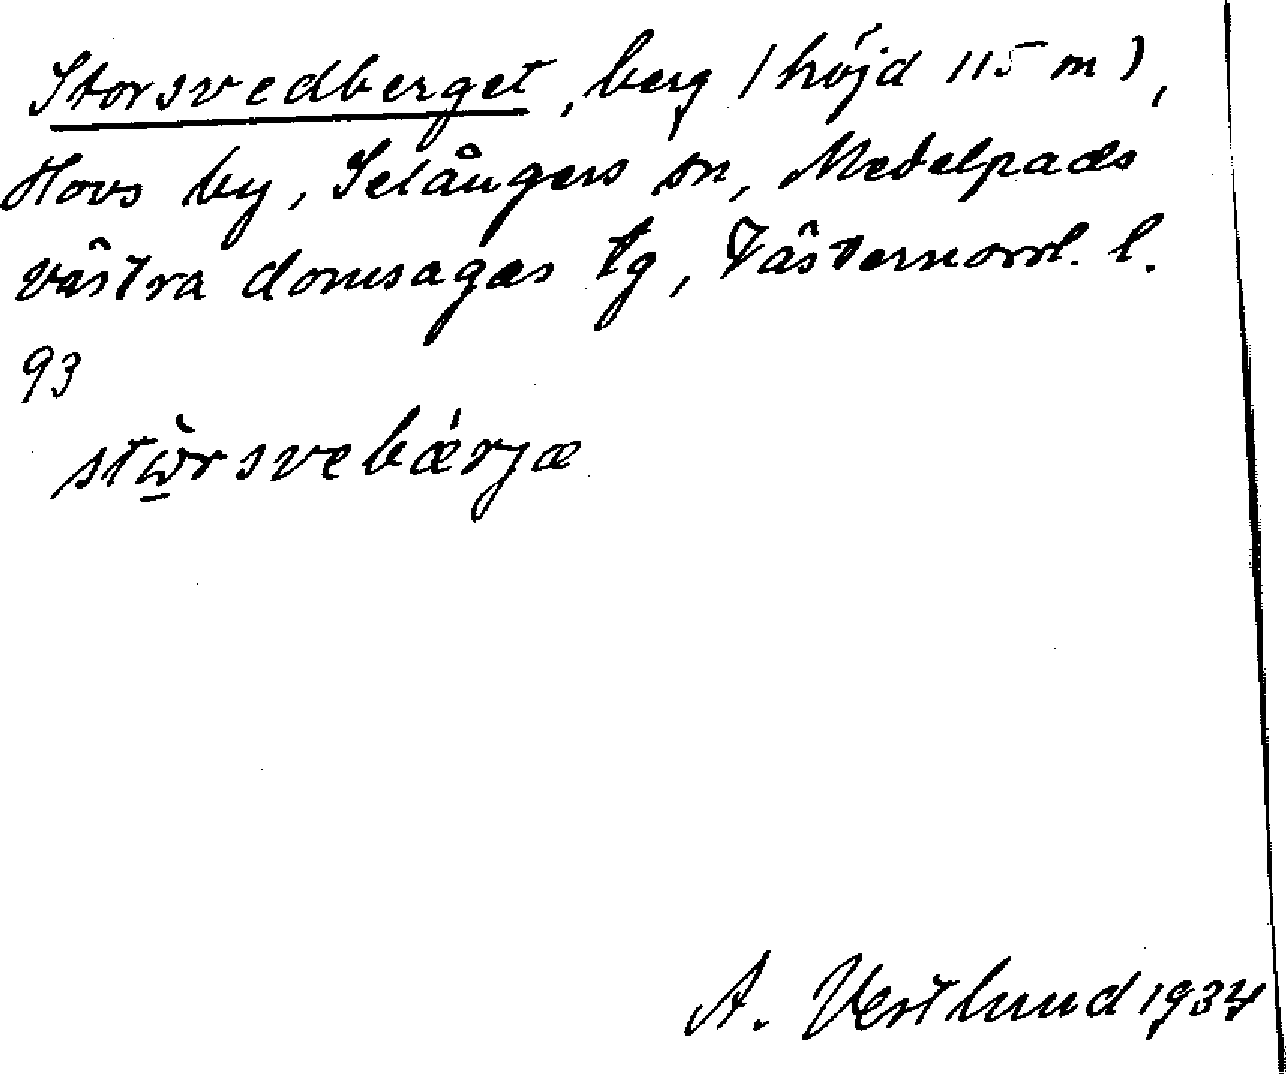 Storsvedberget, berg (höjd 115 m),
Hovs by, Selångers sn, Medelpads
västra domsagas tg, Västernorrl. l.
93
stὼ̲rsvebǽrjæ
A. Vestlund 1934